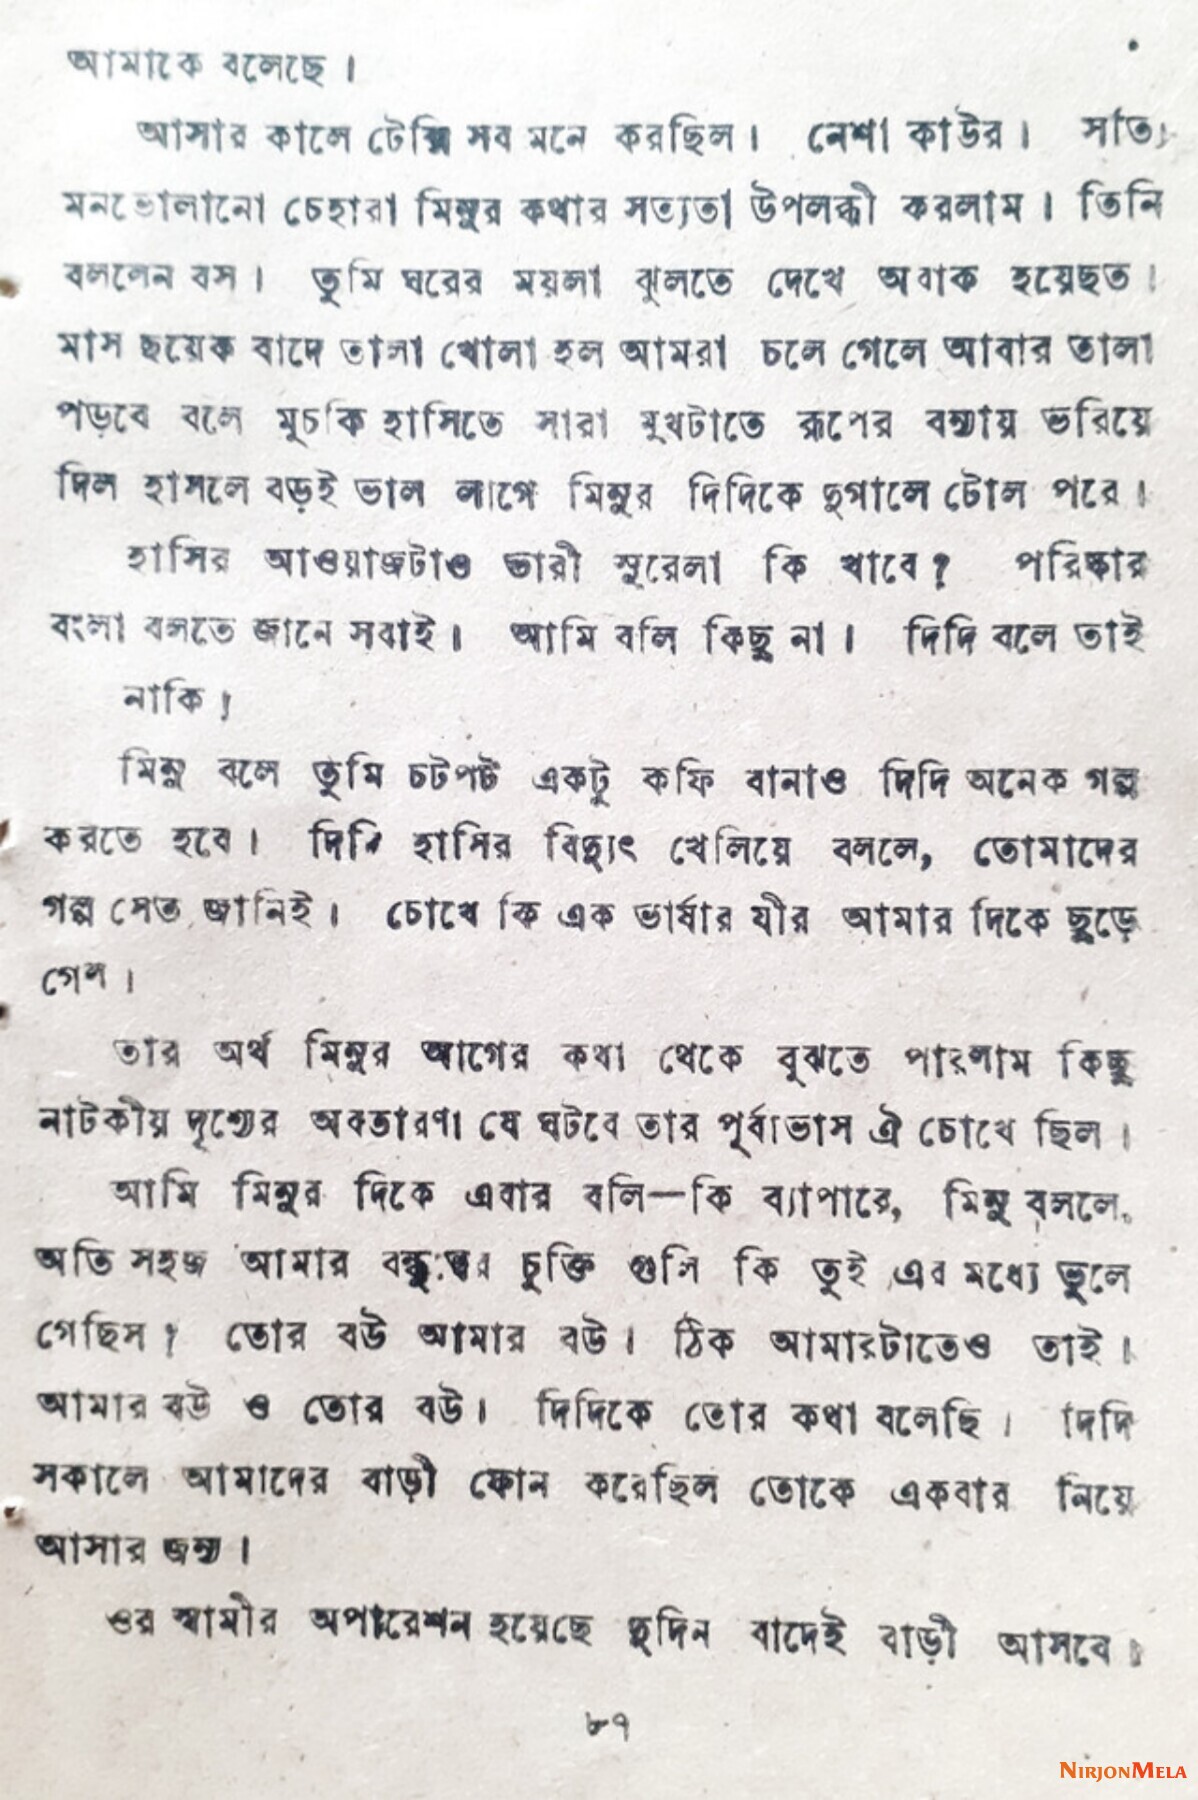 আমাকে বলেছে ।
আসার কালে টেক্সি সব মনে করছিল । নেশা কাউর । সত্যি
মনভোলানো চেহারা মিনুর কথার সত্যতা উপলব্ধী করলাম । তিনি
বললেন বস । তুমি ঘরের ময়লা ঝুলতে দেখে অবাক হয়েছত ।
মাস ছয়েক বাদে তালা খোলা হল আমরা চলে গেলে আবার তালা
পড়বে বলে মুচকি হাসিতে সারা মুখটাতে রূপের বন্যায় ভরিয়ে
দিল হাসলে বড়ই ভাল লাগে মিনুর দিদিকে দুগালে টোল পরে ।
হাসির আওয়াজটাও ভারী সুরেলা কি খাবে ? পরিষ্কার
বংলা বলতে জানে সবাই । আমি বলি কিছু না । দিদি বলে তাই
নাকি !
মিনু বলে তুমি চটপট একটু কফি বানাও দিদি অনেক গল্প
করতে হবে । দিদি হাসির বিদ্যুৎ খেলিয়ে বললে, তোমাদের
গল্প সেত জানিই । চোখে কি এক ভার্ষার যীর আমার দিকে ছুড়ে
গেল ।
তার অর্থ মিনুর আগের কথা থেকে বুঝতে পারলাম কিছু
নাটকীয় দৃশ্যের অবতারণা যে ঘটবে তার পূর্বাভাস ঐ চোখে ছিল ।
আমি মিনুর দিকে এবার বলি—কি ব্যাপারে, মিনু বললে,
অতি সহজ আমার বন্ধুত্বের চুক্তি গুলি কি তুই এর মধ্যে ভুলে
গেছিস ? তোর বউ আমার বউ । ঠিক আমারটাতেও তাই ।
আমার বউ ও তোর বউ । দিদিকে তোর কথা বলেছি । দিদি
সকালে আমাদের বাড়ী ফোন করেছিল তোকে একবার নিয়ে
আসার জন্য ।
ওর স্বামীর অপারেশন হয়েছে দুদিন বাদেই বাড়ী আসবে ।
৮৭
NIRJONMELA